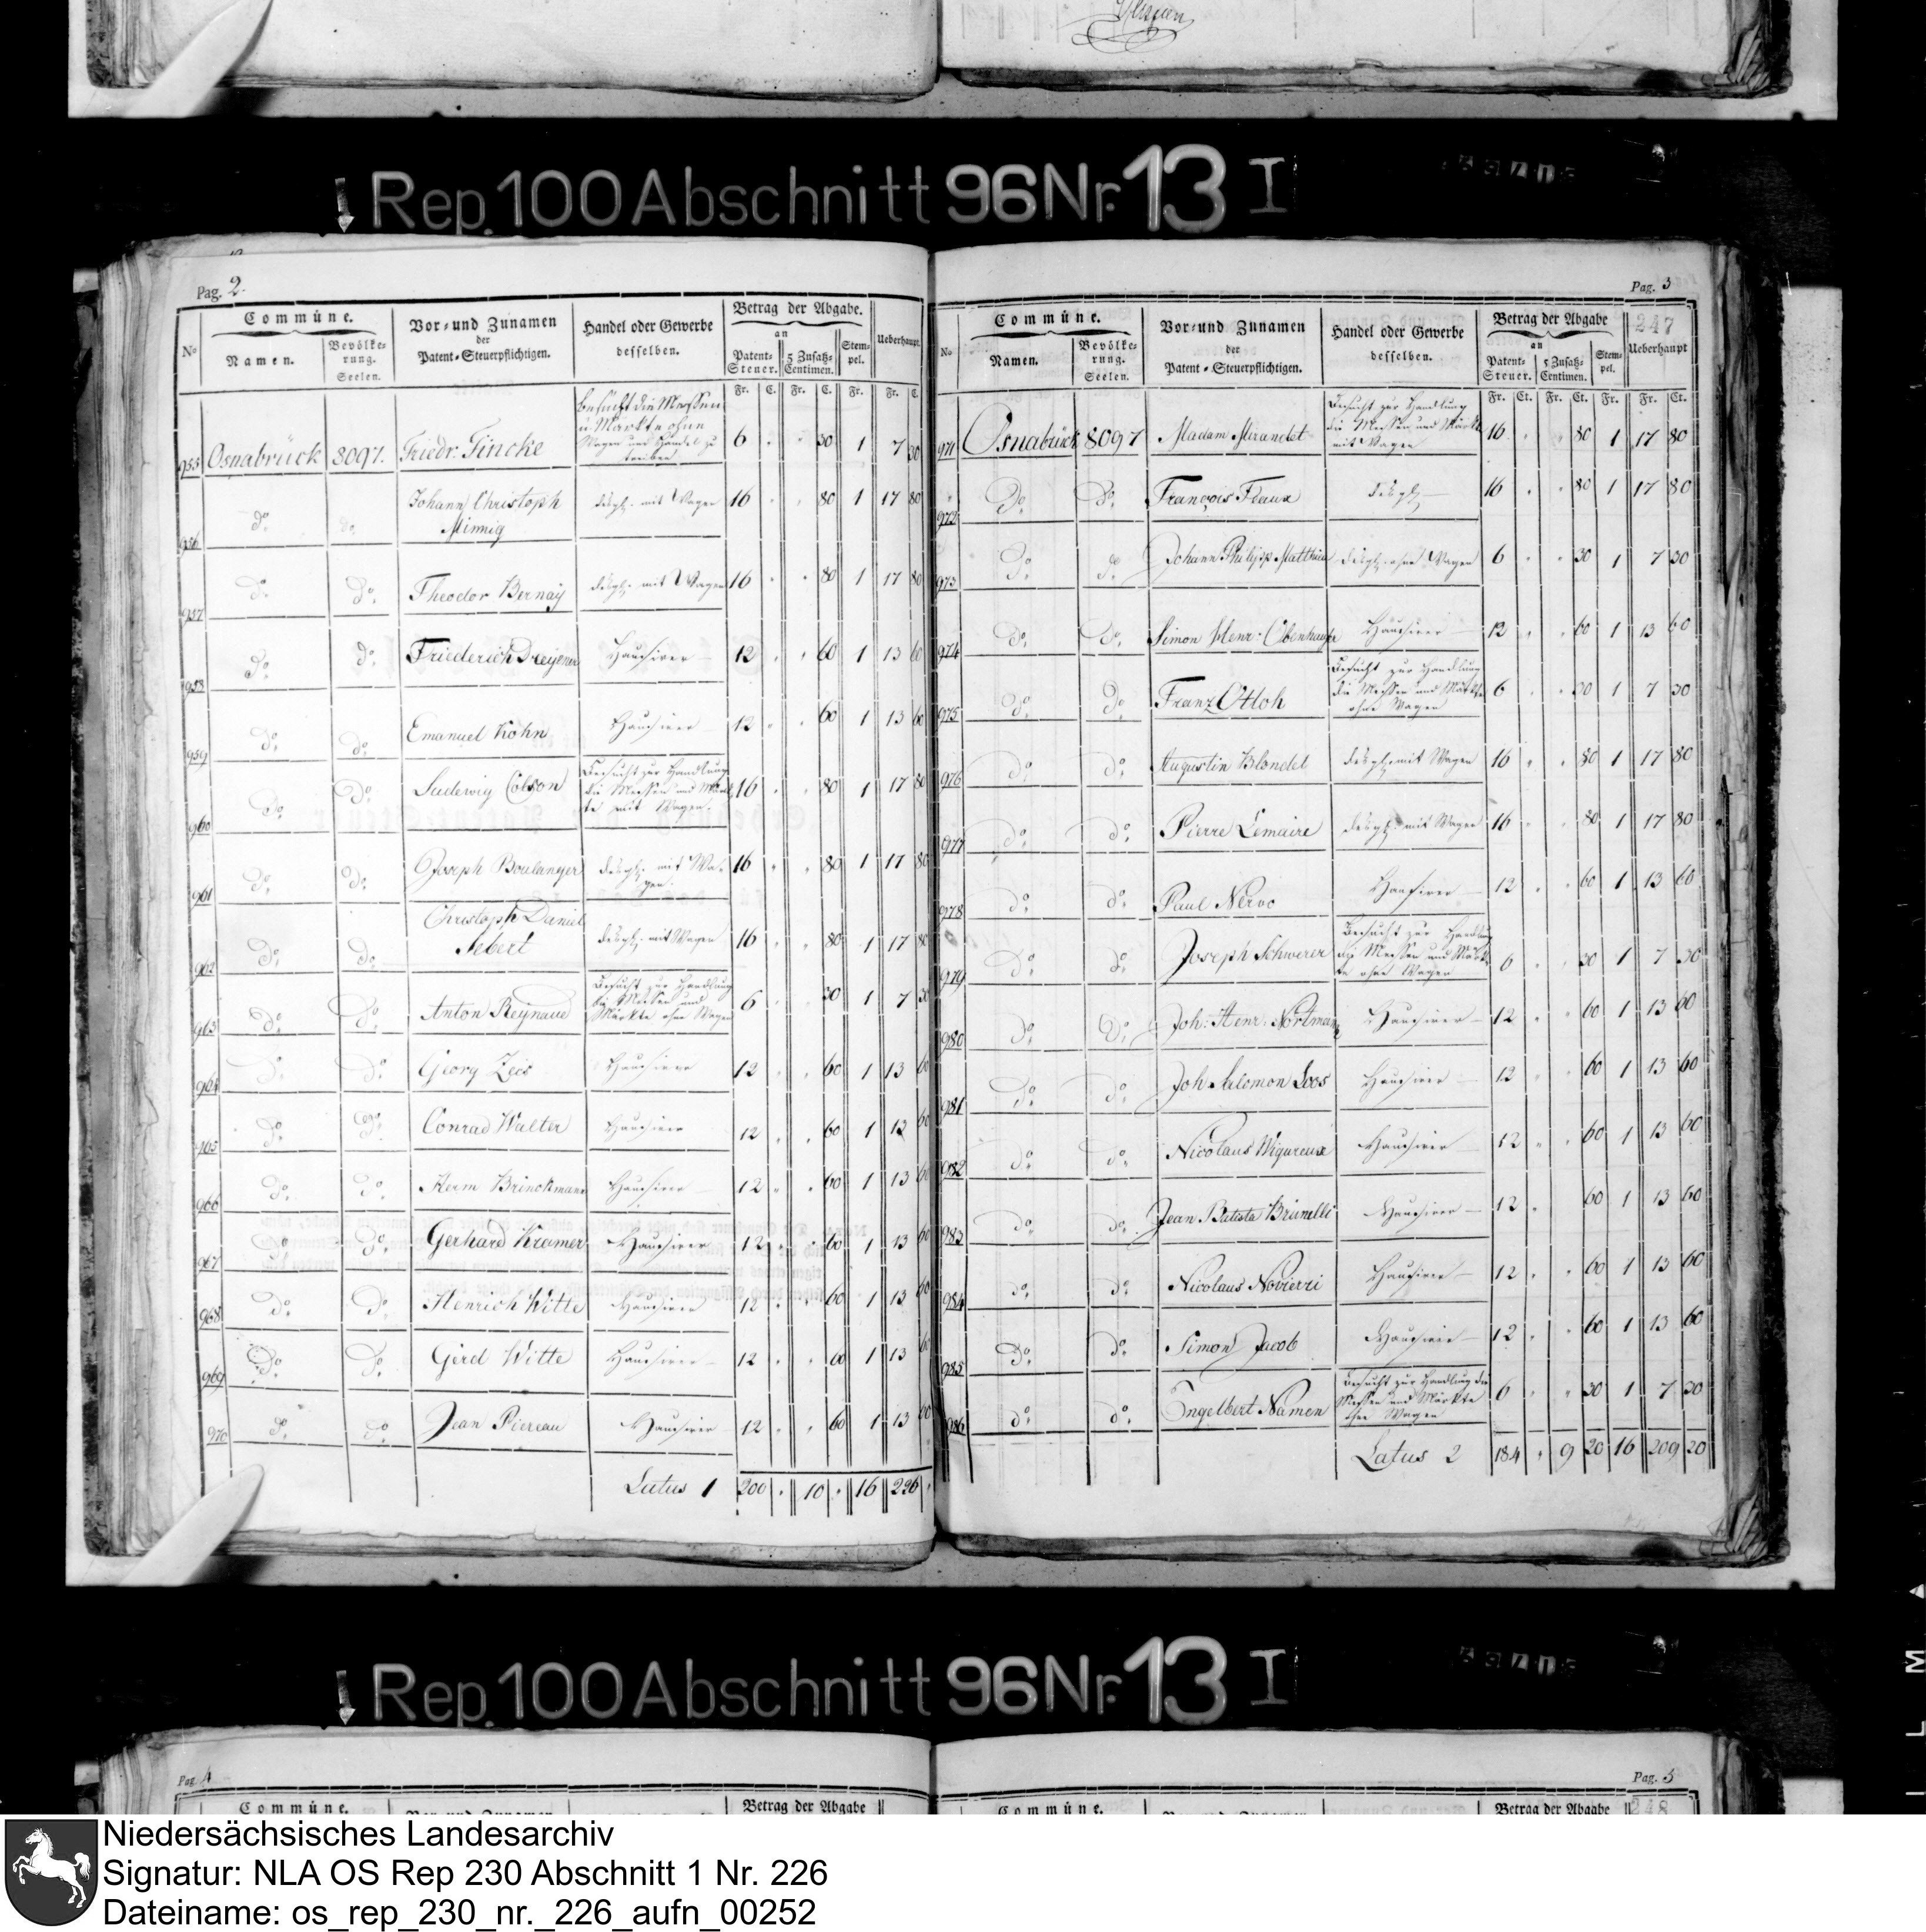 Rep. 100 Abschnitt 96 Nr. 13 I
Pag. 2.
Commüne.
Vor= und Zunamen
der
Patent=Steuerpflichtigen.
Handel oder Gewerbe
desselben.
Betrag der Abgabe.
an
Ueberhaupt.
No
Namen.
Bevölke=
rung.
Seelen.
Patent=
Steuer.
5 Zusatz=
Centimen.
Stem=
pel.
Fr. C. Fr. C. Fr. Fr. C.
besucht die Messen
u. Märkte ohne
Wagen und Handel zu
treiben
955 Osnabrück 8097. Friedr. Fincke 6 " " 30 1 7 30
956 do do Johann Christoph
Minnig
desgl. mit Wagen 16 " " 80 1 17 80
957 do do Theodor Bernay desgl. mit Wagen 16 " " 80 1 17 80
958 do do Friederich Hausirer 12 " " 60 1 13 60
959 do do Emanuel Kohn Hausirer 12 " " 60 1 13 60
960 do do Ludewig Colson Besucht zur Handlung
die Messen und Märk
te mit Wagen. 16 " " 80 1 17 80
961 do do Joseph Boulanger desgl. mit Wa-
gen. 16 " " 80 1 17 80
962 do do Christoph Daniel
Sebert
desgl. mit Wagen 16 " " 80 1 17 80
963 do do Anton Reynaud Besucht zur Handlung
die Messen und
Märkte ohne Wagen 6 " " 30 1 7 30
964 do do Georg Zeis Hausirer 12 " " 60 1 13 60
965 do do Conrad Walter Hausirer 12 " " 60 1 13 60
966 do do Herm Brinckmann Hausirer 12 " " 60 1 13 60
967 do do Gerhard Kramer Hausirer 12 " " 60 1 13 60
968 do do Henrich Witte Hausirer 12 " " 60 1 13 60
969 do do Gerd Witte Hausirer 12 " " 60 1 13 60
970 do do Jean Piereau Hausirer 12 " " 60 1 13 60
Latus 1 200 " 10 " 16 226 "
Pag. 3
247
Commüne.
Vor= und Zunamen
der
Patent=Steuerpflichtigen.
Handel oder Gewerbe
desselben.
Betrag der Abgabe
an
Ueberhaupt
No
Namen.
Bevölke=
rung.
Seelen.
Patent=
Steuer.
5 Zusatz=
Centimen.
Stem=
pel.
Fr. Ct. Fr. Ct. Fr. Fr. Ct.
971 Osnabrück 8097 Madam Mirandet Besucht zur Handlung
die Messen und Märkte
mit Wagen 16 " " 80 1 17 80
972 do do François Flaux desgl. 16 " " 80 1 17 80
973 do do Johann Philipp Matthieu desgl. ohne Wagen 6 " " 30 1 7 30
974 do do Simon Henr: Hausirer 12 " " 60 1 13 60
975 do do Franz Ottoh Besucht zur Handlung
die Messen und Märkte
ohne Wagen 6 " " 30 1 7 30
976 do do Augustin Blondel desgl. mit Wagen 16 " " 80 1 17 80
977 do do Pierre Lemaire desgl. mit Wagen 16 " " 80 1 17 80
978 do do Paul Nervo Hausirer 12 " " 60 1 13 60
979 do do Joseph Schwerer Besucht zur Handlung
die Messen und Märk
te ohne Wagen 6 " " 30 1 7 30
980 do do Joh: Henr. Nortmann Hausirer 12 " " 60 1 13 60
981 do do Joh Salomon Loos Hausirer 12 " " 60 1 13 60
982 do do Nicolaus Wigureux Hausirer 12 " " 60 1 13 60
983 do do Jean Batista Brunelli Hausirer 12 " 60 1 13 60
984 do do Nicolaus Novierri Hausirer 12 " " 60 1 13 60
985 do do Simon Jacob Hausirer 12 " " 60 1 13 60
986 do do Engelbert Namen Besucht zur Handlung die
Messen und Märkte
ohne Wagen 6 " " 30 1 7 30
Latus 2 184 " 9 20 16 209 20
Rep. 100 Abschnitt 96 Nr. 13 I
Pag. 4
Pag. 5
Commüne.
Betrag der Abgabe
Commüne.
Betrag der Abgabe
248
Niedersächsisches Landesarchiv
Signatur: NLA OS Rep 230 Abschnitt 1 Nr. 226
Dateiname: os_rep_230_nr._226_aufn_00252